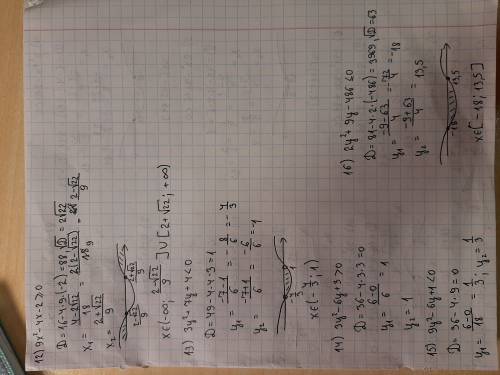 12) 9x² - 4x - 2 ≥ 0
D = 16 - 4·9·(-2) = 88, √D = 2√22
x₁ = (4 - 2√22)/18 = 2(2 - √22)/18 = (2 - √22)/9
x₂ = (2 + √22)/9
(2-√22)/9 (2+√22)/9
x∈(-∞; (2-√22)/9] ∪ [2+√22; +∞)
13) 3y² + 7y + 4 < 0
D = 49 - 4·4·3 = 1
y₁ = (-7-1)/6 = -8/6 = -4/3
y₂ = (-7+1)/6 = -6/6 = -1
x∈(-4/3; 1)
14) 3y² - 6y + 3 > 0
D = 36 - 4·3·3 = 0
y₁ = (6-0)/6 = 1
y₂ = 1
15) 9y² - 6y + 1 < 0
D = 36 - 4·9 = 0
y₁ = (6-0)/18 = 1/3; y₂ = 1/3
16) 2y² + 9y - 486 ≤ 0
D = 81 - 4·2·(-486) = 3969, √D = 63
y₁ = (-9-63)/4 = -72/4 = -18
y₂ = (-9+63)/4 = 13,5
-18 13,5
x∈[-18; 13,5]